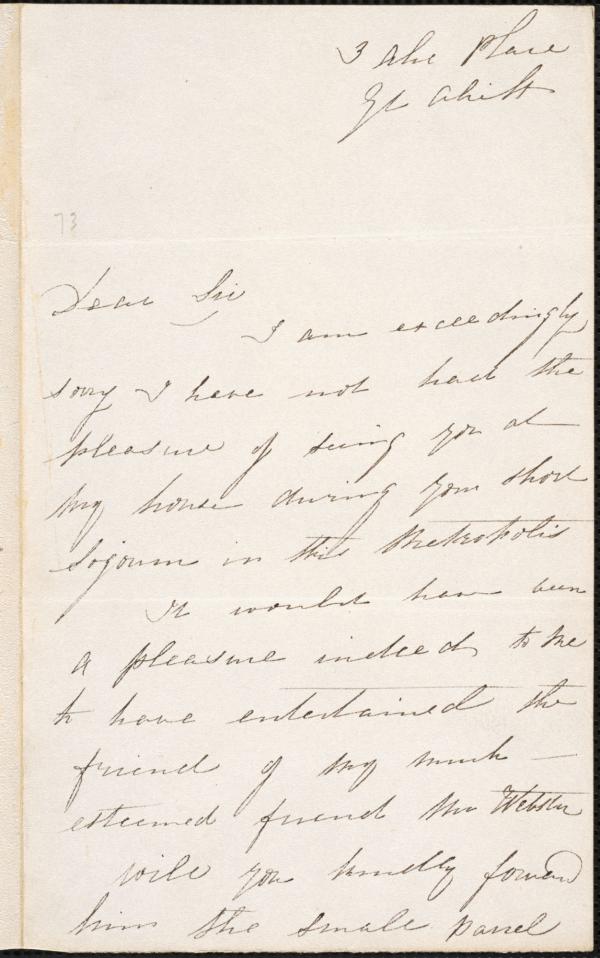 3 Place
73
Dear Sir
I am exceedingly
sorry I have not had the
pleasure of seeing you at
my house during your short
Sojourn in this Metropolis
It would have been
a pleasure indeed to me
to have entertained the
friend of my much
esteemed friend Mr Webster
will you kindly forward
him the small parcel